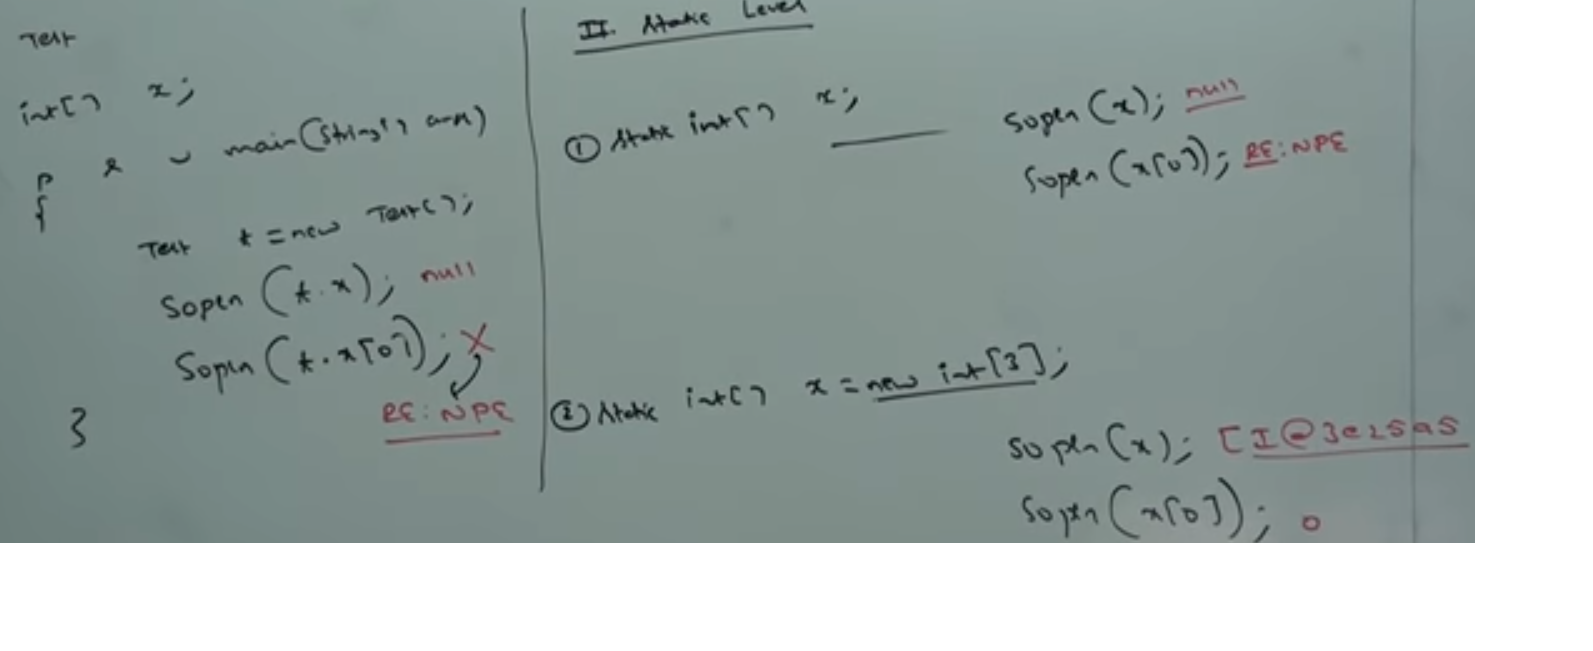 Test
int[] x;
p s v main(String[] args)
{
Test t = new Test();
Sopln (t.x); null
Sopln (t.x[0]); X
RE: NPE
}
II. Static Level
① Static int[] x;
Sopln (x); null
Sopln (x[0]); RE: NPE
② Static int[] x = new int[3];
Sopln (x); [I@3e25a5
Sopln (x[0]); 0